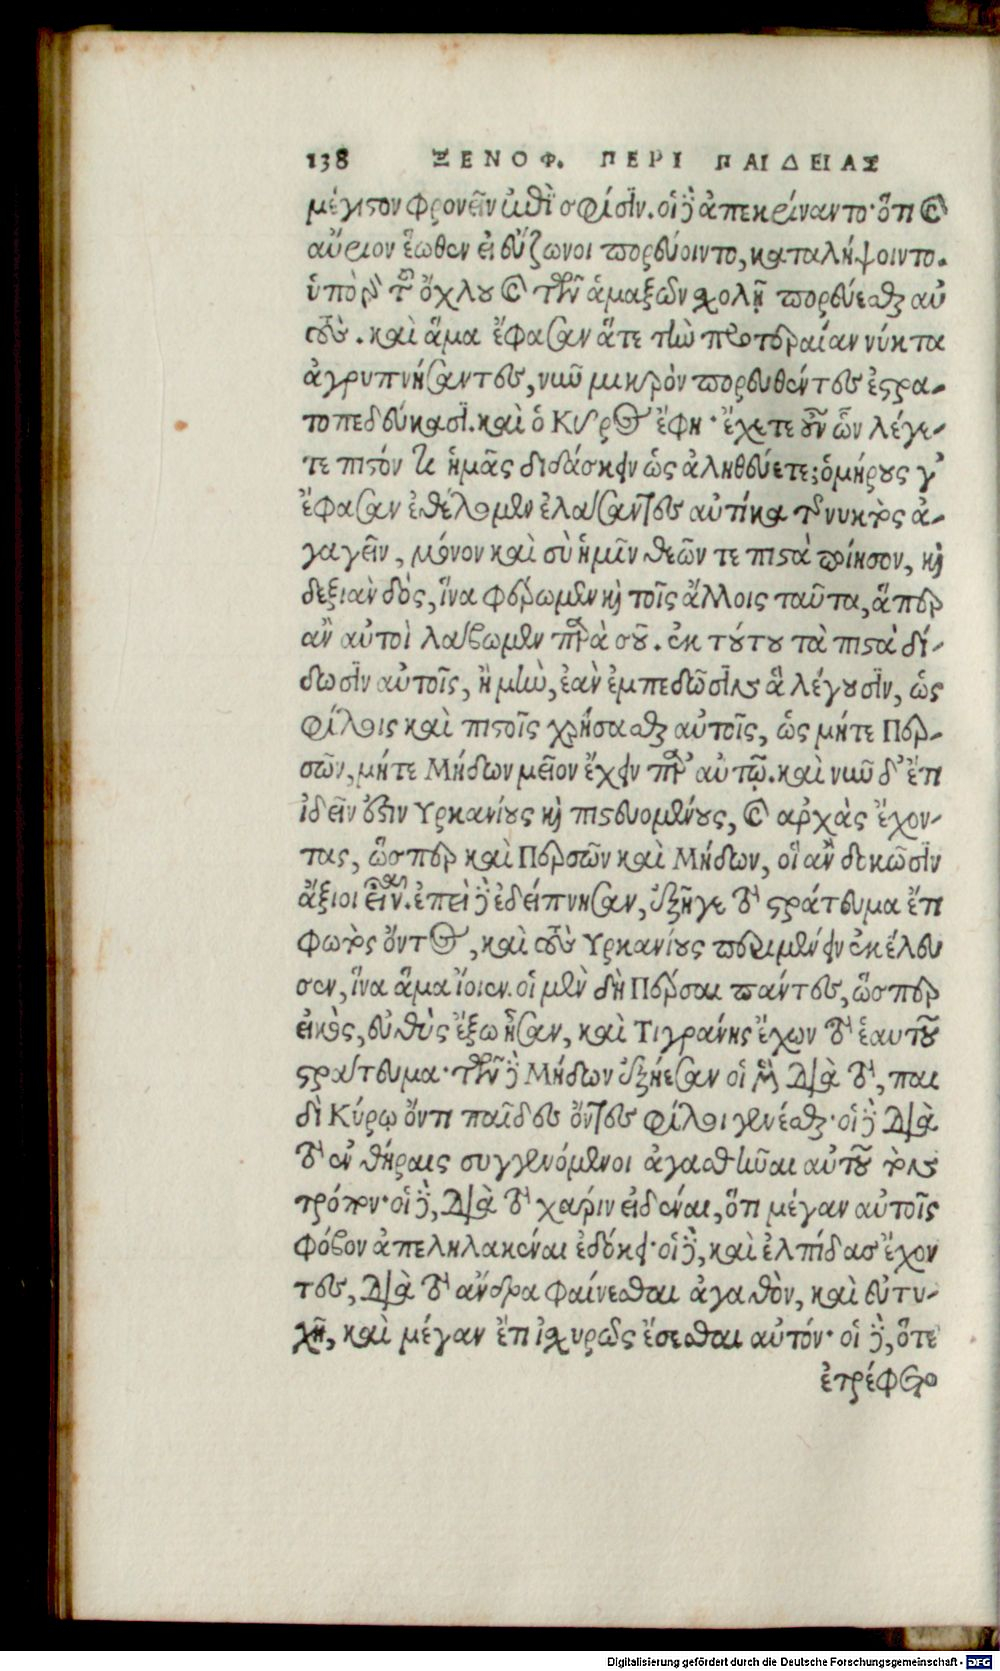 138 ΞΕΝΟΦ. ΠΕΡΙ ΠΑΙΔΕΙΑΣ
μέγιστον φρονεῖν ἐπὶ σφίσιν. οἱ δὲ ἀπεκρίναντο· ὅτι καὶ
αὔριον ἕωθεν εἰ εὔζωνοι πορεύοιντο, καταλήψοιντο.
ὑπὸ γὰρ τοῦ ὄχλου καὶ τῶν ἁμαξῶν σχολῇ πορεύεσθαι αὐ
τούς. καὶ ἅμα ἔφασαν ἅτε τὴν προτεραίαν νύκτα
ἀγρυπνήσαντες, νῦν μικρὸν πορευθέντες ἐστρα-
τοπεδεύκασι. καὶ ὁ Κῦρος ἔφη· ἔχετε οὖν ὧν λέγε-
τε πιστόν τι ἡμᾶς διδάσκειν ὡς ἀληθεύετε; ὁμήρους γ'
ἔφασαν ἐθέλομεν ἐλάσαντες αὐτίκα τῆς νυκτὸς ἀ-
γαγεῖν, μόνον καὶ σὺ ἡμῖν θεῶν τε πιστὰ ποίησον, καὶ
δεξιὰν δὸς, ἵνα φέρωμεν καὶ τοῖς ἄλλοις ταῦτα, ἅπερ
ἂν αὐτοὶ λάβωμεν παρὰ σοῦ. ἐκ τούτου τὰ πιστὰ δί-
δωσιν αὐτοῖς, ἦ μὴν, ἐὰν ἐμπεδῶσιν ἃ λέγουσιν, ὡς
φίλοις καὶ πιστοῖς χρήσασθαι αὐτοῖς, ὡς μήτε Περ-
σῶν, μήτε Μήδων μεῖον ἔχειν παρ' αὐτῷ. καὶ νῦν δ' ἔτι
ἰδεῖν ἔστιν Υρκανίους καὶ πιστευομένους, καὶ ἀρχὰς ἔχον-
τας, ὥσπερ καὶ Περσῶν καὶ Μήδων, οἳ ἂν δοκῶσιν
ἄξιοι εἶναι. ἐπεὶ δὲ ἐδείπνησαν, ἐξῆγε τὸ στράτευμα ἔτι
φωτὸς ὄντος, καὶ τοὺς Υρκανίους περιμένειν ἐκέλευ
σεν, ἵνα ἅμα ἴοιεν. οἱ μὲν δὴ Πέρσαι πάντες, ὥσπερ
εἰκὸς, εὐθὺς ἔξω ἦσαν, καὶ Τιγράνης ἔχων τὸ ἑαυτοῦ
στράτευμα· τῶν δὲ Μήδων ἐξῄεσαν οἱ μὲν διὰ τὸ, παι
δὶ Κύρῳ ὄντι παῖδες ὄντες φίλοι γενέσθαι· οἱ δὲ διὰ
τὸ ἐν θήραις συγγενόμενοι ἀγασθῆναι αὐτοῦ τὸν
τρόπον· οἱ δὲ, διὰ τὸ χάριν εἰδέναι, ὅτι μέγαν αὐτοῖς
φόβον ἀπεληλακέναι ἐδόκει· οἱ δὲ, καὶ ἐλπίδας ἔχον
τες, διὰ τὸ ἄνδρα φαίνεσθαι ἀγαθὸν, καὶ εὐτυ-
χῆ, καὶ μέγαν ἔτι ἰσχυρῶς ἔσεσθαι αὐτόν· οἱ δὲ, ὅτε
ἐτρέφετο
Digitalisierung gefördert durch die Deutsche Forschungsgemeinschaft - DFG